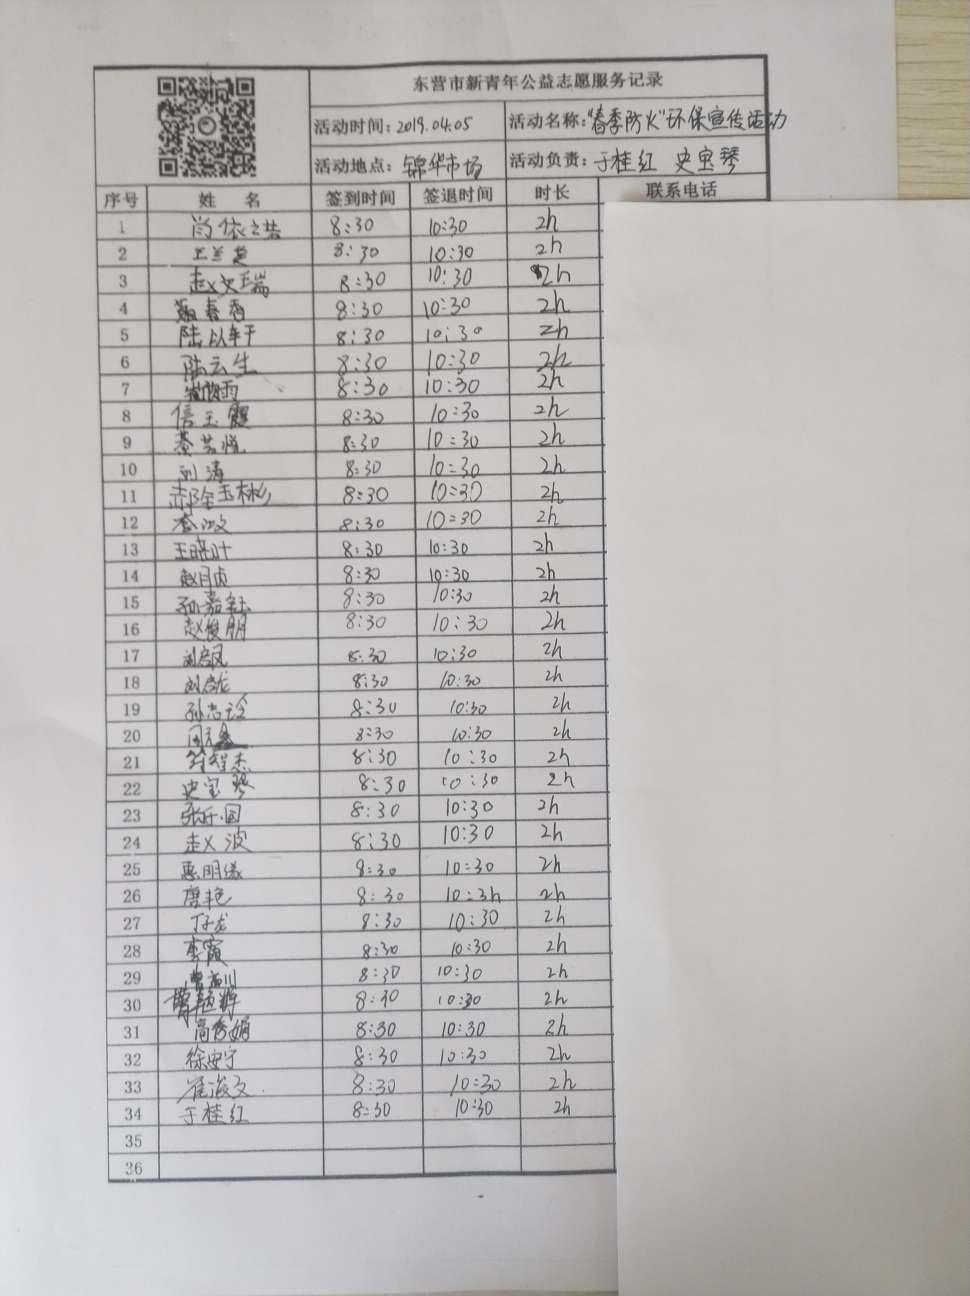 东营市新青年公益志愿服务记录
活动时间：2019.04.05 活动名称："春季防火"环保宣传活动
活动地点：锦华市场 活动负责：于桂红 史宝琴
序号 姓名 签到时间 签退时间 时长 联系电话
1 8:30 10:30 2h
2 8:30 10:30 2h
3 赵文瑞 8:30 10:30 2h
4 春香 8:30 10:30 2h
5 陆以轩 8:30 10:30 2h
6 陆云生 8:30 10:30 2h
7 8:30 10:30 2h
8 信玉霞 8:30 10:30 2h
9 8:30 10:30 2h
10 刘涛 8:30 10:30 2h
11 8:30 10:30 2h
12 8:30 10:30 2h
13 王晓叶 8:30 10:30 2h
14 赵月贞 8:30 10:30 2h
15 孙嘉钰 8:30 10:30 2h
16 赵俊朋 8:30 10:30 2h
17 8:30 10:30 2h
18 8:30 10:30 2h
19 8:30 10:30 2h
20 8:30 10:30 2h
21 智杰 8:30 10:30 2h
22 史宝琴 8:30 10:30 2h
23 8:30 10:30 2h
24 赵波 8:30 10:30 2h
25 8:30 10:30 2h
26 唐艳 8:30 10:3h 2h
27 8:30 10:30 2h
28 李霞 8:30 10:30 2h
29 8:30 10:30 2h
30 8:30 10:30 2h
31 高秀娟 8:30 10:30 2h
32 徐安宁 8:30 10:30 2h
33 崔海文 8:30 10:30 2h
34 于桂红 8:30 10:30 2h
35
36